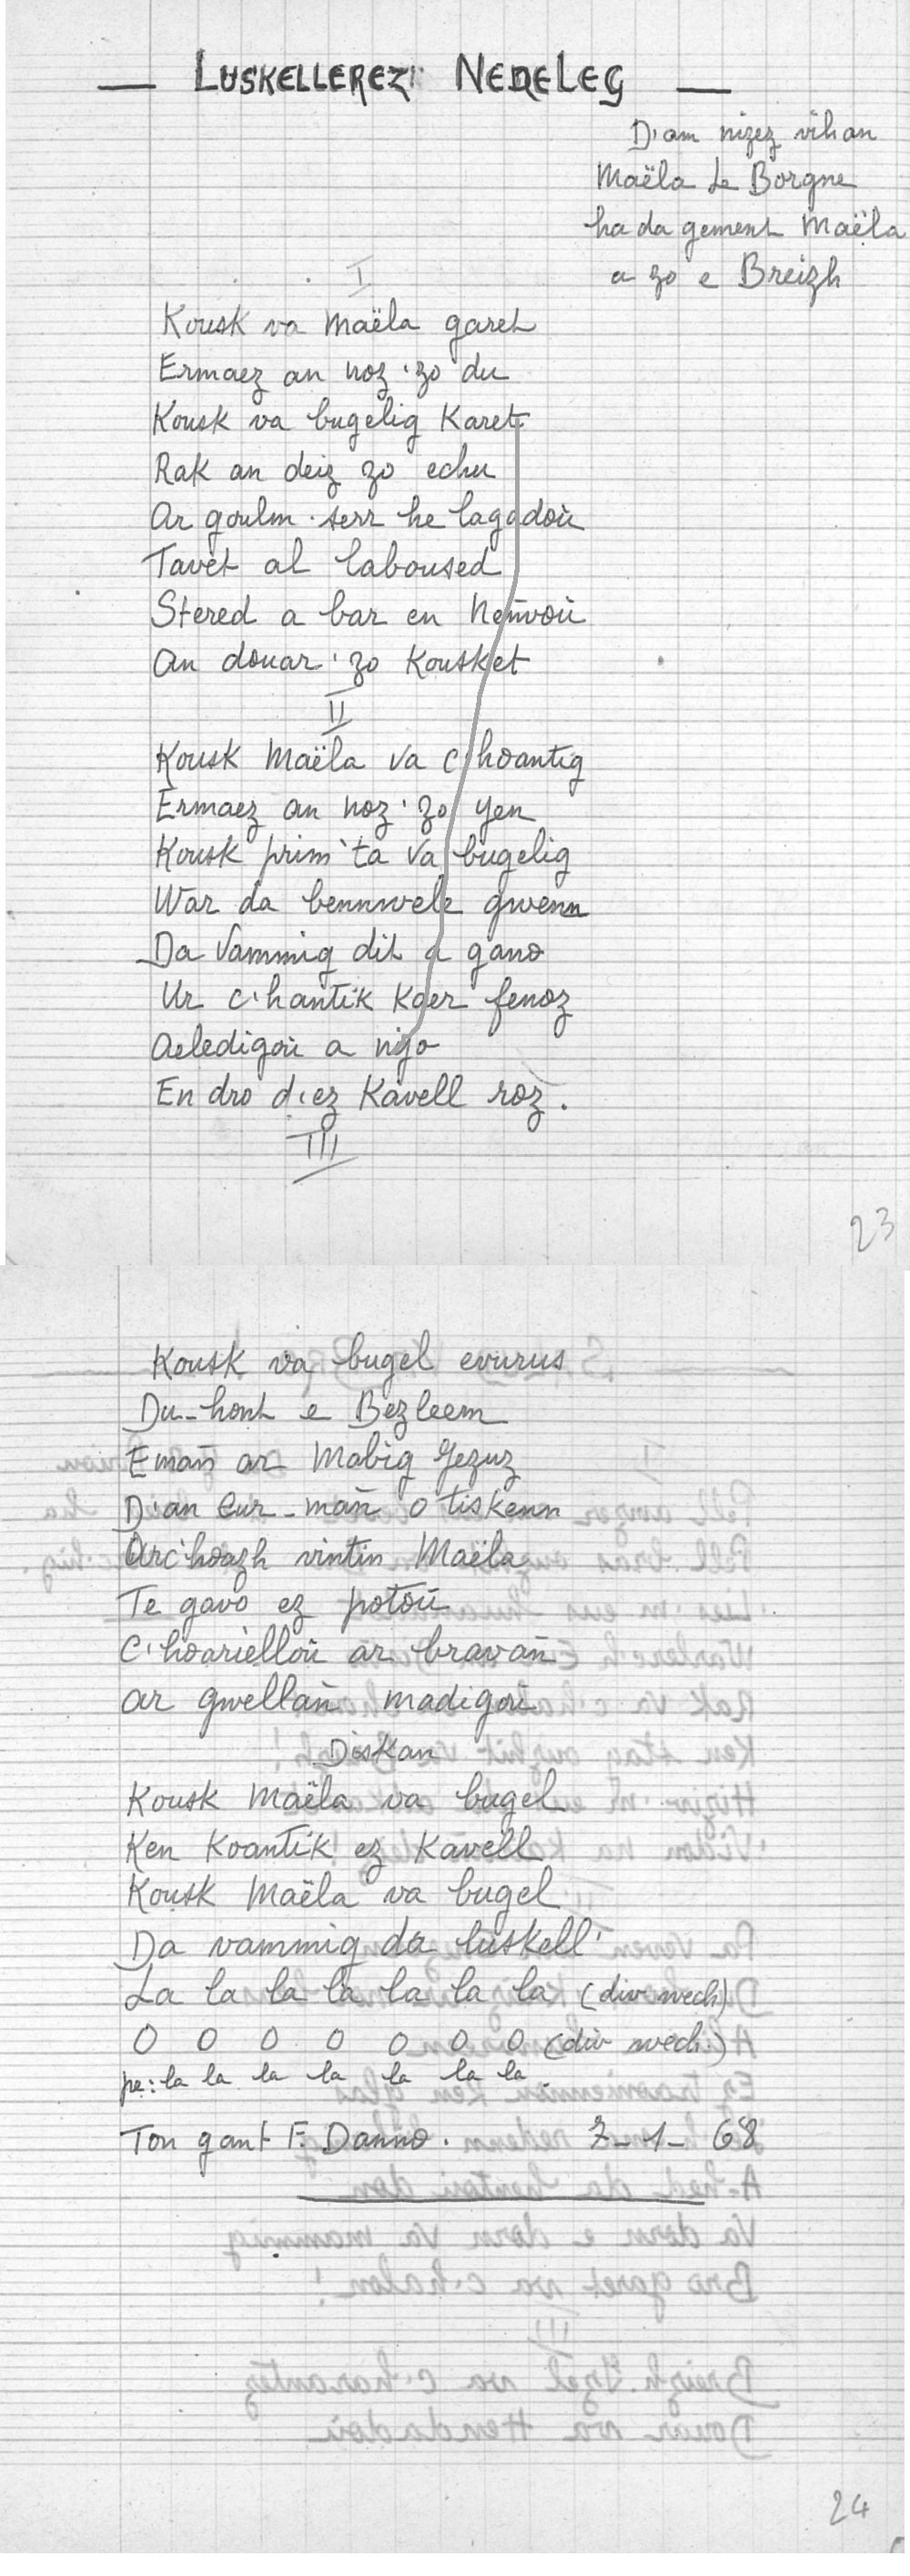 — LUSKELLEREZ NEDELEG —
D'am nizez vihan
Maëla Le Borgne
ha da gement Maëla
a zo e Breizh
I
Kousk va Maëla garet
Ermaez an noz 'zo du
Kousk va bugelig Karet
Rak an deiz zo echu
Ar goulm serr he lagadoù
Tavet al laboused
Stered a bar en Neñvoù
An douar 'zo Kousket
II
Kousk Maëla va c'hoantig
Ermaez an noz 'zo yen
Kousk prim 'ta va bugelig
War da bennwele gwenn
Da Vammig dit a gano
Ur c'hantik Kaer fenoz
Aeledigoù a nijo
En dro d'ez Kavell roz.
III
23
Kousk va bugel evurus
Du-hont e Bezleem
Emañ ar Mabig Jezuz
D'an Eur-mañ o tiskenn
Arc'hoazh vintin Maëla
Te gavo ez potoù
C'hoarielloù ar bravañ
ar gwellañ madigoù
Diskan
Kousk Maëla va bugel
Ken Koantik ez Kavell
Kousk Maëla va bugel
Da vammig da luskell'
La la la la la la la (div wech)
O O O O O O O (div wech.)
pe: la la la la la la la
Ton gant F. Danno. 7-1-68
24